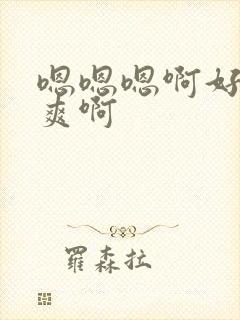 嗯嗯嗯啊好
爽啊
羅森拉